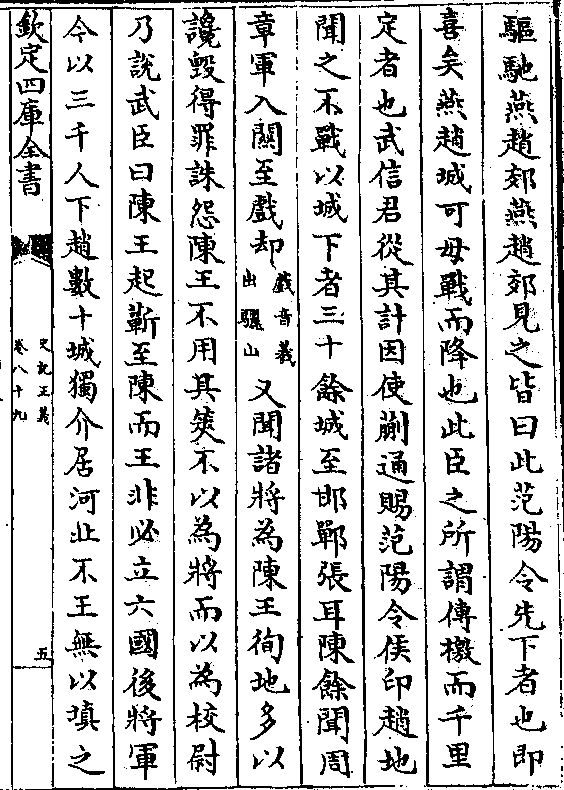 驅馳燕趙郊燕趙郊見之皆曰此范陽令先下者也即
喜矣燕趙城可毋戰而降也此臣之所謂傳檄而千里
定者也武信君從其計因使蒯通賜范陽令侯印趙地
聞之不戰以城下者三十餘城至邯鄲張耳陳餘聞周
章軍入關至戲却戲音羲出驪山又聞諸將為陳王徇地多以
讒毁得罪誅怨陳王不用其筴不以為將而以為校尉
乃說武臣曰陳王起蘄至陳而王非必立六國後將軍
今以三千人下趙數十城獨介居河北不王無以填之
欽定四庫全書
史記正義
卷八十九
五